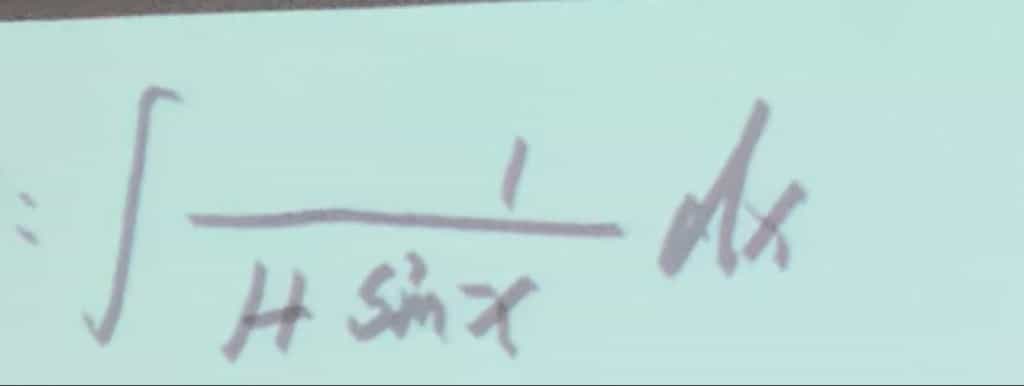 : ∫ 1/(1+ sin x) dx